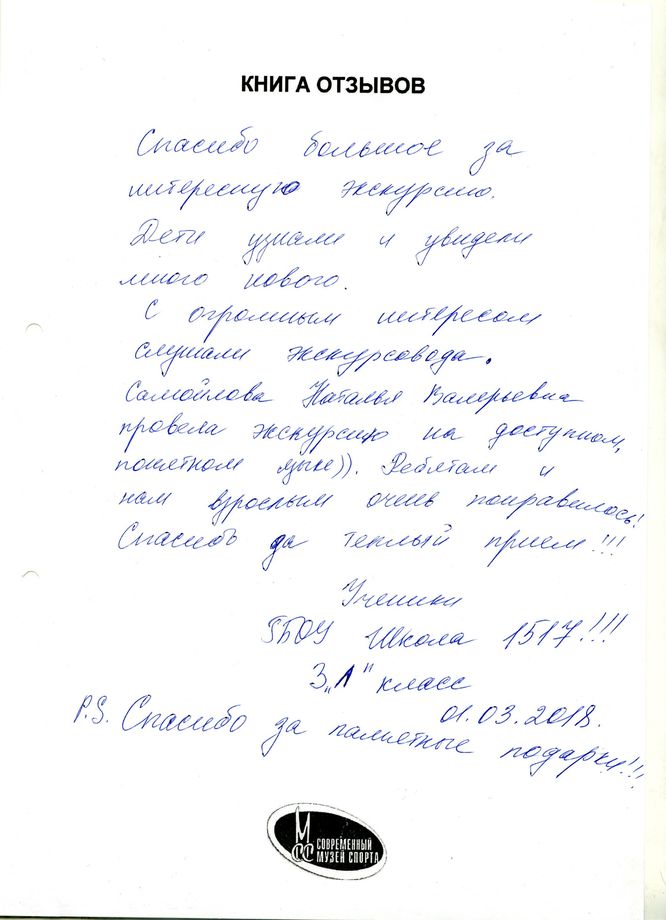 КНИГА ОТЗЫВОВ
Спасибо большое за
интересную экскурсию.
Дети узнали и увидели
много нового.
С огромным интересом
слушали экскурсовода.
Самойлова Наталья Валерьевна
провела экскурсию на доступном,
понятном языке)). Ребятам и
нам взрослым очень понравилось!
Спасибо за теплый прием!!!
Ученики
ГБОУ Школа 1517!!!
3 „А" класс
01.03.2018.
P.S. Спасибо за памятные подарки!!!
М
СС СОВРЕМЕННЫЙ
МУЗЕЙ СПОРТА